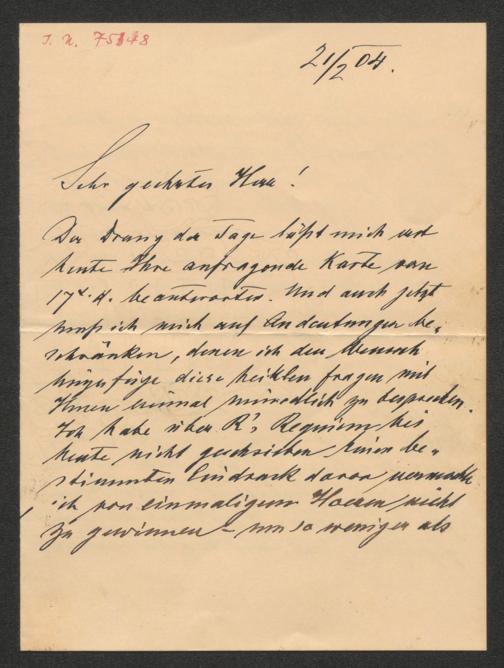 J. N. 75848
21/2 04.
Sehr geehrter Herr!
Der Drang der Tage läßt mich erst
heute Ihre anfragende Karte vom
17. d. beantworten. Und auch jetzt
muß ich mich auf Andeutungen be-
schränken, denen ich den Wunsch
hinzufüge diese heiklen Fragen mit
Ihnen einmal mündlich zu besprechen.
Ich habe über R's Requiem bis
heute nicht geschrieben keinen be-
stimmten Eindruck davon vermochte
ich von einmaligem Hoeren nicht
zu gewinnen – um so weniger als